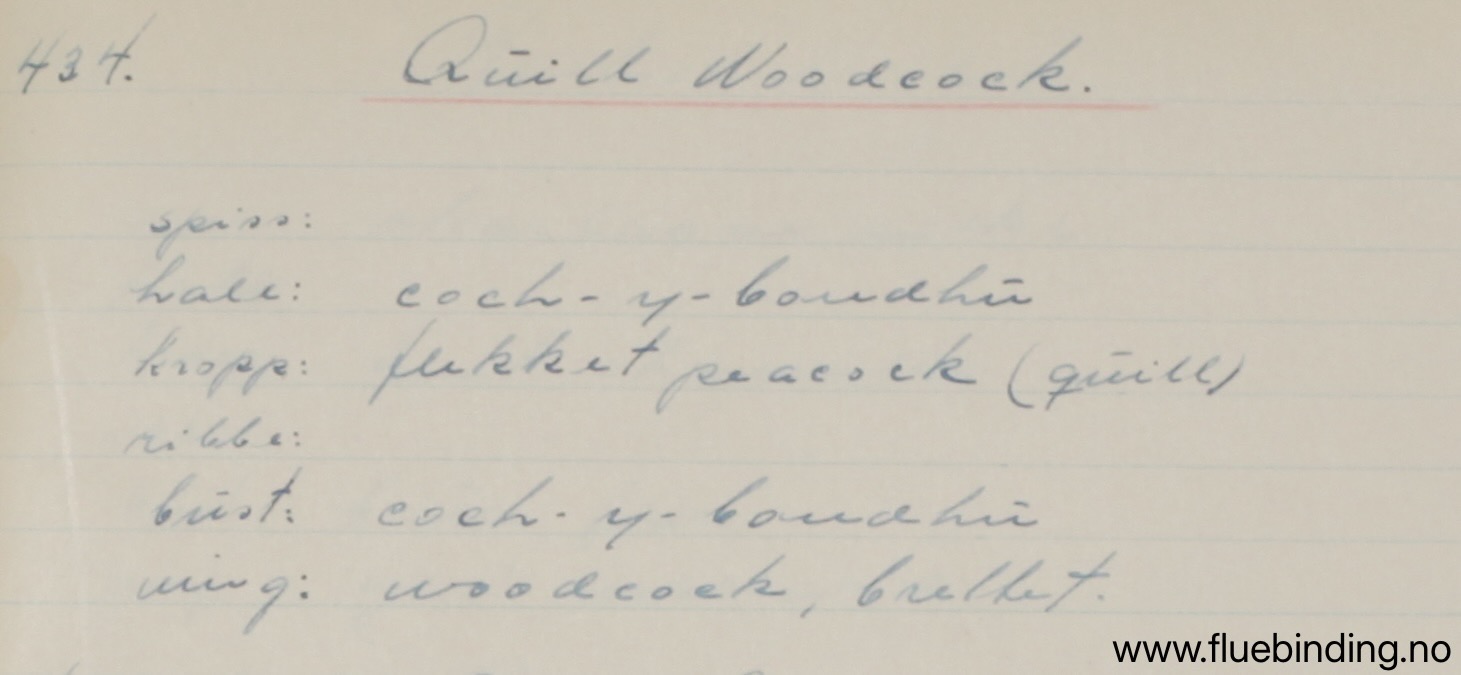 434. Quill Woodcock.
spiss:
hale: coch-y-bondhu
kropp: flekket peacock (quill)
ribbe:
bust: coch-y-bondhu
ving: woodcock, brettet.
www.fluebinding.no